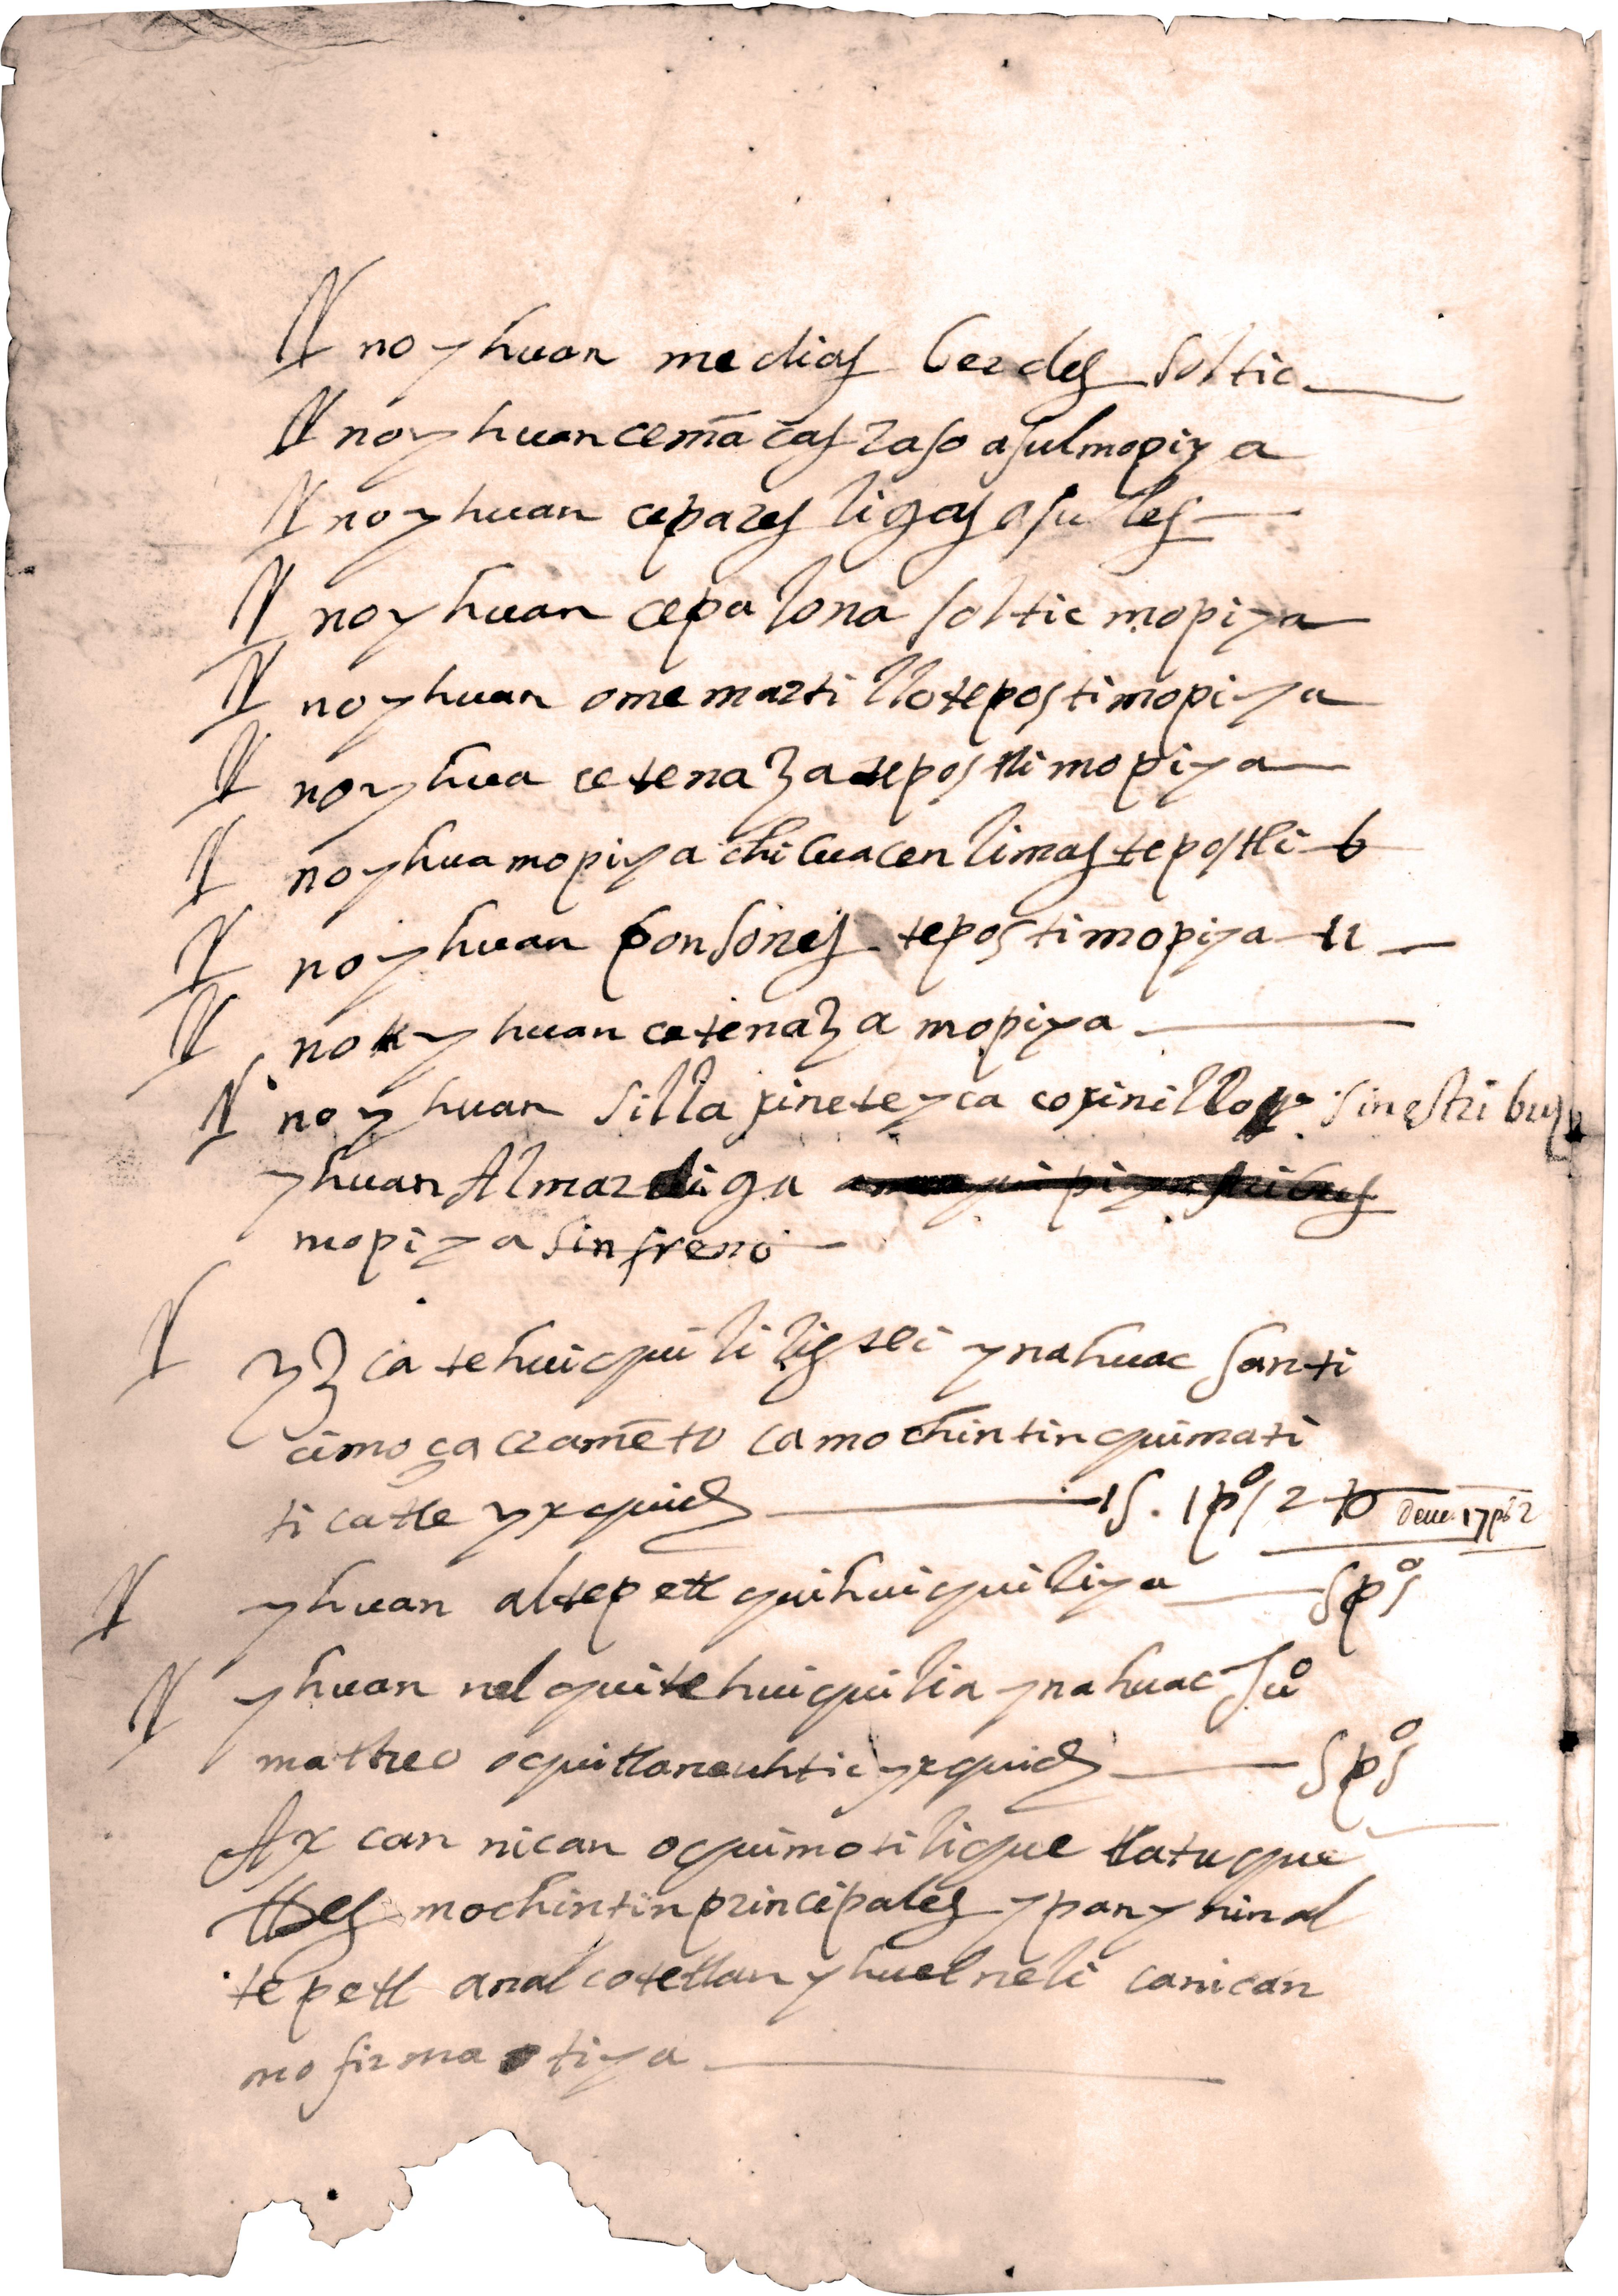 no yhuan medias berdes soltic
no yhuan ce mācas raso asul mopiya
no yhuan ce pares ligas asules
no yhuan ce palona soltic mopiya
no yhuan ome martillo teposti mopiya
no yhua ce tenaza tepostli mopiya
no yhua mopiya chicuacen limas tepostli 6
no yhuan ponsones teposti mopiya 11
no yhuan ce tenaza mopiya
no yhuan silla jinete yca cojinillo sin estribus
yhuan Almardiga
mopiya sin freno
yz ca tehuiquililistli ynahuac santi
cimo çacramēto ca mochintin quimati
ticatle yxquich 15. 1 pos 2 to deue 17 ps 2
yhuan altepetl quihuiquiliya 5 pos
yhuan nel quitehuiquilia ynahuac Juo
mattheo oquitlaneuhtic yxquich 5 pos
Axcan nican oquimotilique tlatuque
mochintin principales ypan ynin al
tepetl analcotetlan yhuel neli ca nican
mofirmatiya